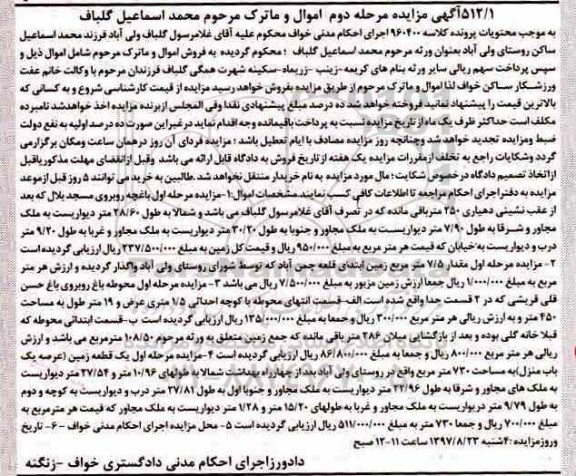 ۵۱۲/۱آگهی مزایده مرحله دوم اموال و ماترک مرحوم محمد اسماعیل گلباف
به موجب محتویات پرونده کلاسه ۹۶۰۴۰۰ اجرای احکام مدنی خواف محکوم علیه آقای غلامرسول گلباف ولی آباد فرزند محمد اسماعیل
ساکن روستای ولی آباد بعنوان ورثه مرحوم محمد اسماعیل گلباف ؛ محکوم گردیده به فروش اموال و ماترک مرحوم شامل اموال ذیل و
سپس پرداخت سهم ریالی سایر ورثه بنام های کریمه-زینب -زریماه-سکینه شهرت همگی گلباف فرزندان مرحوم با وکالت خانم عفت
ورزشکار ساکن خواف لذا اموال و ماترک مرحوم از طریق مزایده بفروش خواهد رسید مزایده از قیمت کارشناسی شروع و به کسانی که
بالاترین قیمت را پیشنهاد نمایند فروخته خواهد شد ده درصد مبلغ پیشنهادی نقدا وفی المجلس ازبرنده مزایده اخذ خواهدشد نامبرده
مکلف است حداکثر ظرف یک ماه از تاریخ مزایده نسبت به پرداخت باقیمانده وجه اقدام نماید در غیر این صورت ده درصد اولیه به نفع دولت
ضبط ومزایده تجدید خواهد شد وچنانچه روز مزایده مصادف با ایام تعطیل باشد ؛ مزایده فردای آن روز در همان ساعت ومکان برگزار می
گردد وشکایات راجع به تخلف از مقررات مزایده یک هفته از تاریخ فروش به دادگاه قابل ارائه می باشد وقبل از انقضای مهلت مذکور یاقبل
از اتخاذ تصمیم دادگاه در خصوص شکایت ؛ مال مورد مزایده به نام خریدار منتقل نخواهد شد.طالبین به خرید می توانند ۵ روز قبل از موعد
مزایده به دفتر اجرای احکام مراجعه تا اطلاعات کافی کسب نمایند.مشخصات اموال:۱-مزایده مرحله اول باغچه روبروی مسجد بلال که بعد
از عقب نشینی دهیاری ۲۵۰ متر باقی مانده که در تصرف آقای غلامرسول گلباف می باشد و شمالا به طول ۲۸/۶۰ متر دیواریست به ملک
مجاور و شرقا به طول ۷/۹۰ متر دیواریست به ملک مجاور و جنوبا به طول ۳۰/۲۰ متر دیواریست به ملک مجاور و غربا به طول ۹/۲۰ متر
درب و دیواریست به خیابان که قیمت هر متر مربع به مبلغ ۹۵۰/۰۰۰ ریال و قیمت کل زمین به مبلغ ۲۳۷/۵۰۰/۰۰۰ ریال ارزیابی گردیده است
۲- مزایده مرحله اول مقدار ۷/۵ متر مربع زمین ابتدای قلعه چمن آباد که توسط شورای روستای ولی آباد واگذار گردیده و ارزش هر متر
مربع به مبلغ ۱/۰۰۰/۰۰۰ ریال جمعا ارزش زمین مزبور به مبلغ ۷/۵۰۰/۰۰۰ ریال می باشد ۳- مزایده مرحله اول محوطه باغ روبروی باغ حسن
قلی قریشی که در ۲ قسمت جدا واقع شده است الف-قسمت انتهای محوطه با کوچه احداثی ۱/۵ متری عرض و ۱۹ متر طول به مساحت
۴۵۰ متر و به ارزش ریالی هر متر مربع ۳۰۰/۰۰۰ ریال و جمعا به مبلغ ۱۳۵/۰۰۰/۰۰۰ ریال ارزیابی گردیده است ب-قسمت ابتدائی محوطه که
قبلا خانه گلی بوده و بعد از بازگشایی میلان ۲۸۶ متر باقی مانده که جمع زمین متعلق به ورثه مرحوم ۱۰۸/۵۰ مترمربع می باشد و ارزش
ریالی هر متر مربع ۸۰۰/۰۰۰ ریال و جمعا به مبلغ ۸۶/۸۰۰/۰۰۰ ریال ارزیابی گردیده است ۴-مزایده مرحله اول یک قطعه زمین (عرصه یک
باب منزل)به مساحت ۷۳۰ متر مربع واقع در روستای ولی آباد بعد از چهارراه بهداشت شمالا به طولهای ۱۰/۹۶ متر و ۲۷/۵۴ متر دیواریست
به ملک های مجاور و شرقا به طول ۲۲/۹۶ متر دیواریست به ملک مجاور و جنوبا اول به طول ۲۷/۸۱ متر درب و دیواریست به کوچه و دوم
به طول ۹/۷۹ متر دیواریست به ملک مجاور و غربا به طولهای ۱۵/۲۰ متر و ۱/۲۸ متر دیواریست به ملک مجاور که قیمت هر مترمربع به
مبلغ ۷۰۰/۰۰۰ ریال و جمعا ۷۳۰ متر به مبلغ ۵۱۱/۰۰۰/۰۰۰ ریال ارزیابی گردیده است ۵- محل مزایده اجرای احکام مدنی خواف ۶- تاریخ
وروزمزایده:۴شنبه ۱۳۹۷/۸/۲۳ ساعت ۱۱-۱۲ صبح
دادورزاجرای احکام مدنی دادگستری خواف -زنگنه